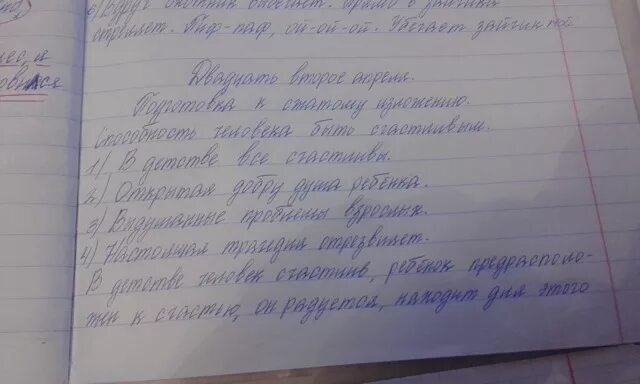 е) Вдруг охотник выбегает. Прямо в зайчика
стреляет. Пиф-паф, ой-ой-ой. Убегает зайчик мой
Двадцать второе апреля.
Подготовка к сжатому изложению.
Способность человека быть счастливым.
1) В детстве все счастливы.
2) Открытая добру душа ребёнка.
3) Выдуманные проблемы взрослых.
4) Настоящая трагедия отрезвляет.
В детстве человек счастлив, ребёнок предрасполо-
жен к счастью, он радуется, находит для этого